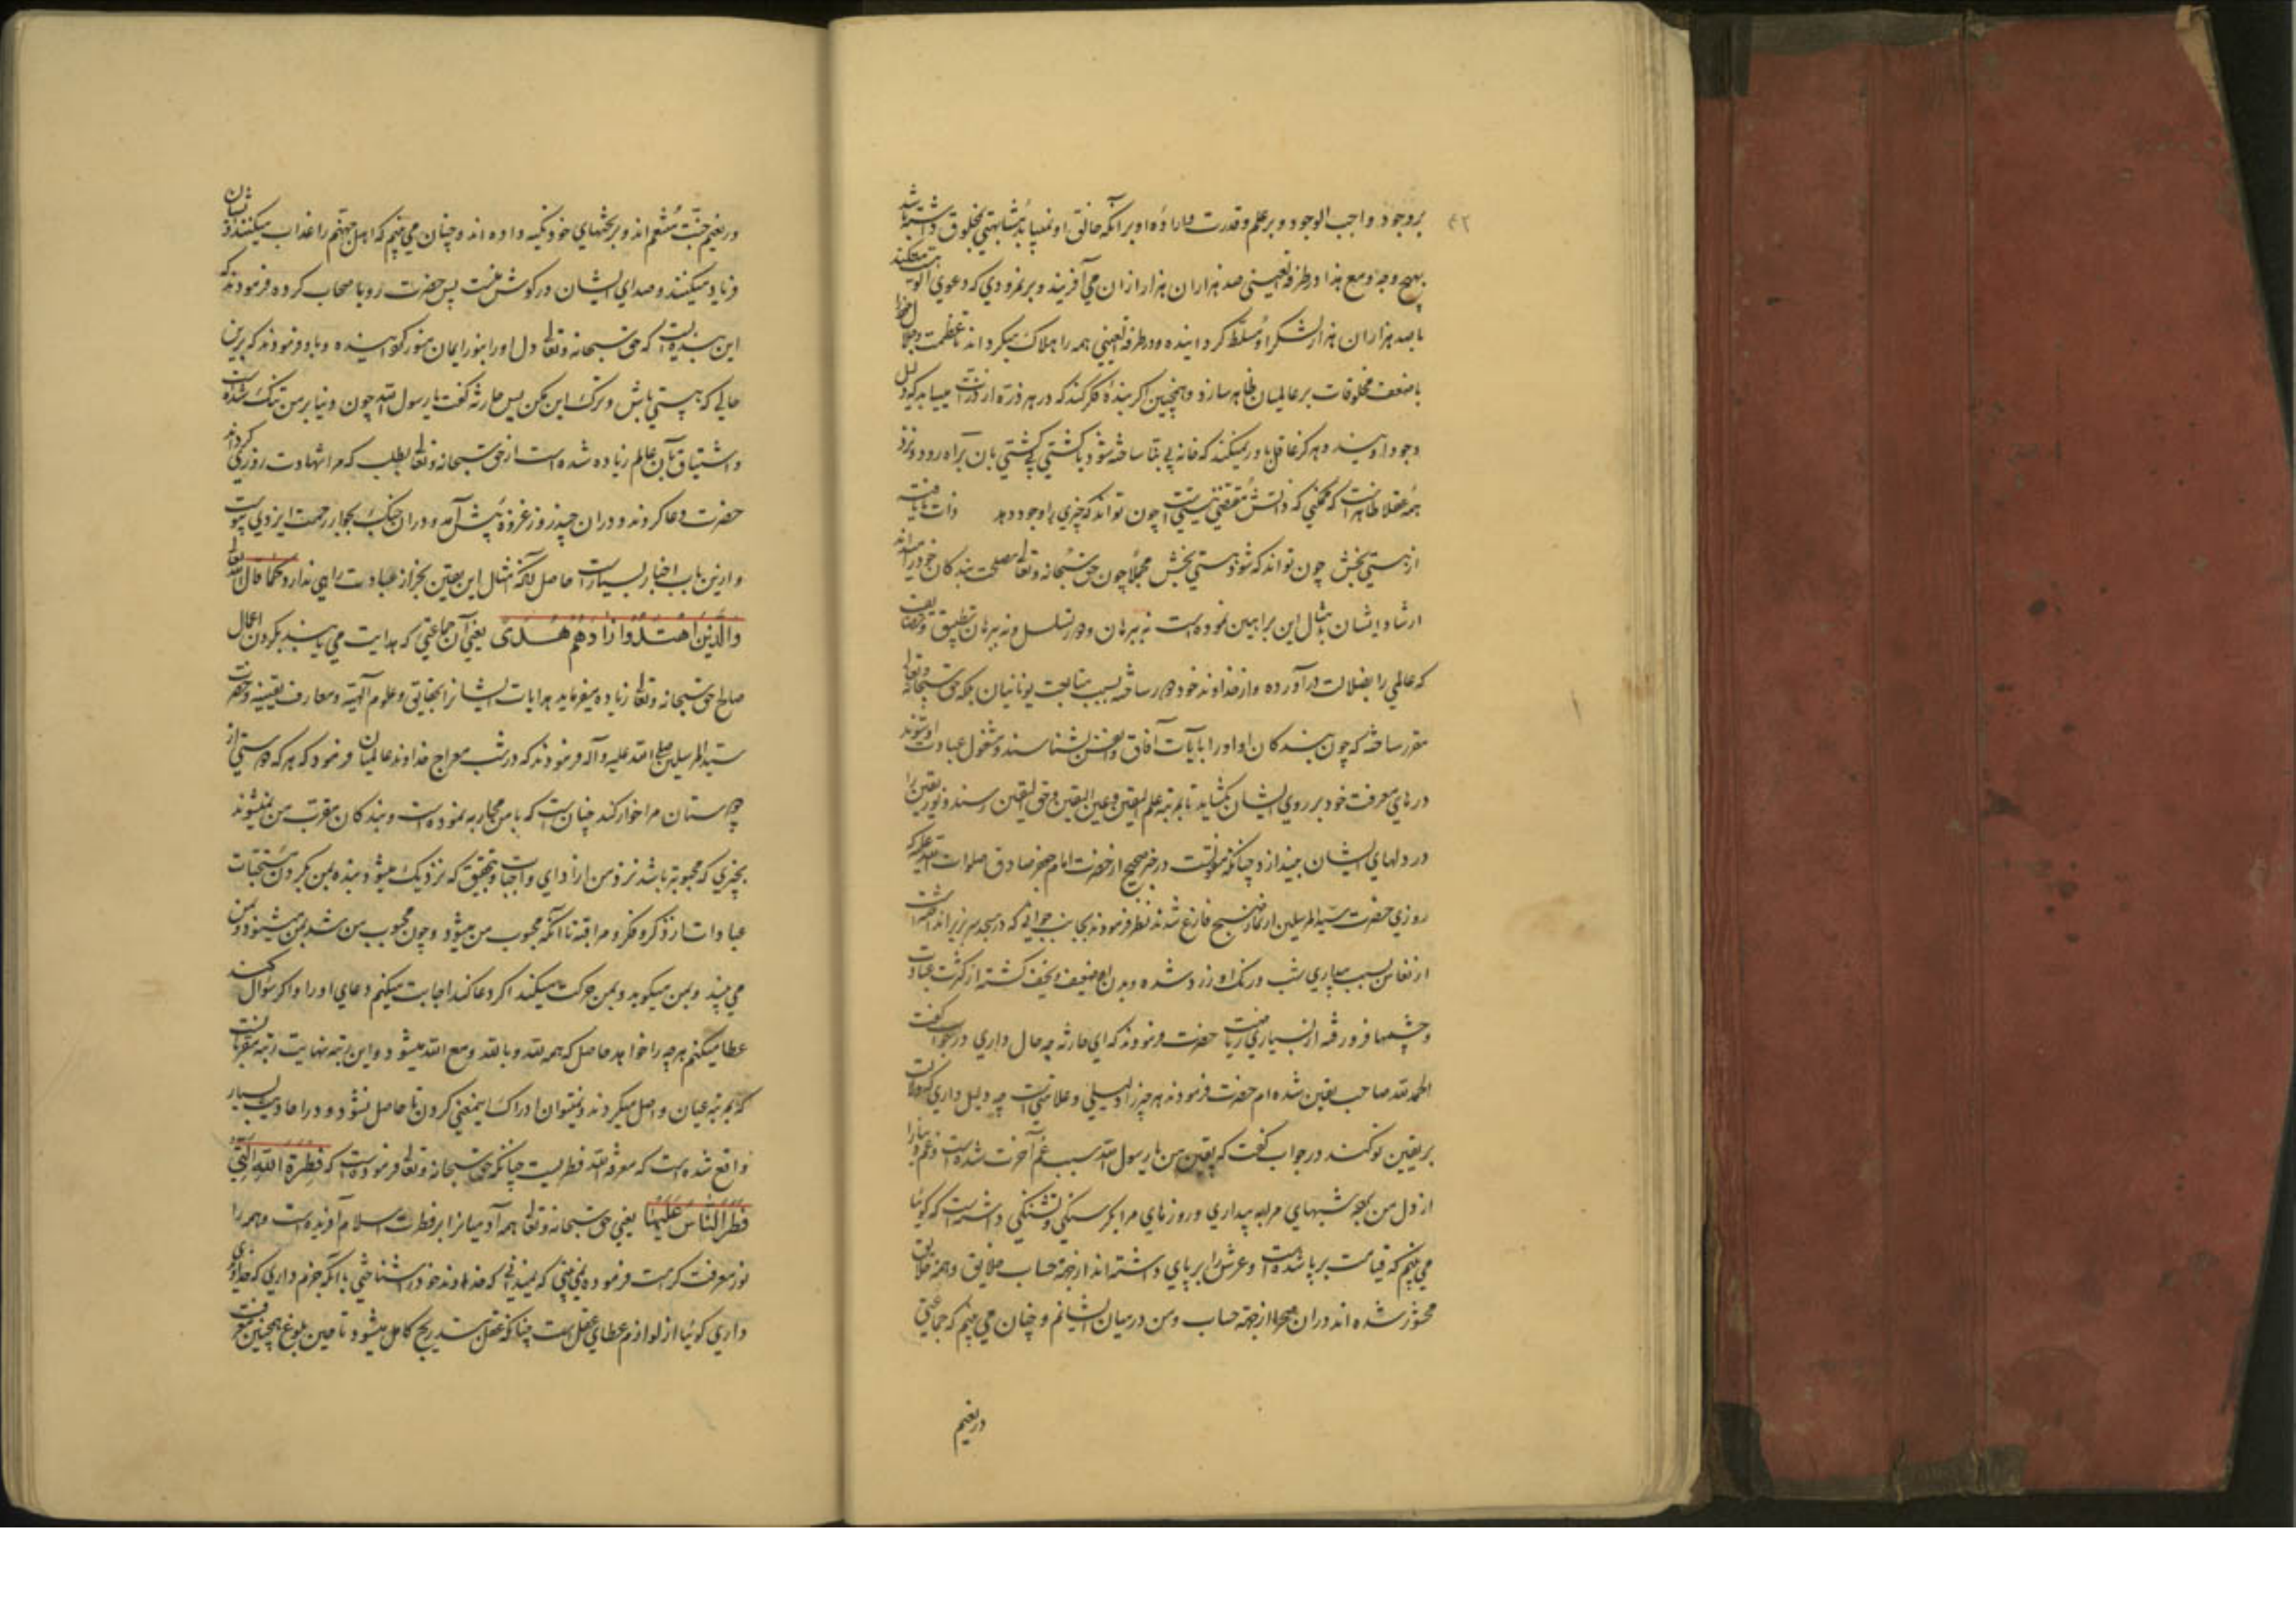 بر وجود واجب الوجود و بر علم و قدرت و اراده او بر آنکه خالق او نمیباید مشابهتی بمخلوق داشته باشد
بهیچ وجه و مع هذا در طرفة العینی صد هزاران هزار ازان می آفریند و بر نمرودی که دعوی الوهیت میکند
با صد هزاران هزار لشکر او مسلط گردانیده و در طرفة العینی همه را هلاک میگرداند تا عظمت و جلال خود را
با ضعف مخلوقات بر عالمیان ظاهر سازد و همچنین اگر بنده فکر کند که در هر ذره از ذرات مییابد که دلیل
وجود اویند و هرگز عاقل باور نمیکند که خانه بی بنا ساخته شود یا کشتی بی کشتی بان براه رود و نزد
همه عقلا ظاهر است که ممکنی که ذاتش مقتضی نیستی است چون تواند که چیزی را وجود دهد ذات نایافته
از هستی بخش چون تواند که شود هستی بخش مجملا چون حق سبحانه و تعالی مصلحت بندگان خود را میداند
ارشاد ایشان بامثال این براهین نموده است نه ببرهان دور و تسلسل و نه ببرهان تطبیق و تضایف
که عالمی را بضلالت در آورده و از خداوند خود دور ساخته بسبب متابعت یونانیان بلکه حق سبحانه و تعالی
مقرر ساخته که چون بندگان او او را بآیات آفاق و انفس بشناسند و مشغول عبادت او شوند
درهای معرفت خود بر روی ایشان بگشاید تا بمرتبه علم الیقین و عین الیقین و حق الیقین رسند و نور یقین را
در دلهای ایشان بیندازد چنانکه منقولست در خبر صحیح از حضرت امام جعفر صادق صلوات الله علیه که
روزی حضرت سید المرسلین از نماز صبح فارغ شدند نظر فرمودند بجانب جوانی که در مسجد سر بزیر انداخته داشت
از نعاس بسبب بیداری شب و رنگ او زرد شده و بدن او ضعیف و نحیف گشته از کثرت عبادت
و چشمها فرو رفته از بسیاری ریاضت حضرت فرمودند که ای حارثه چه حال داری در جواب گفت
الحمد لله صاحب یقین شده ام حضرت فرمودند هر چیز را دلیلی و علامتی است چه دلیل داری که دلالت
بر یقین تو کند در جواب گفت که یقین من یا رسول الله سبب غم آخرت شده است و غم دنیا را
از دل من برده شبهای مرا به بیداری و روزهای مرا بگرسنگی و تشنگی داشته است که گوئیا
می بینم که قیامت بر پا شده است و عرش را بر پای داشته اند از جهة حساب خلایق و همه خلایق
محشور شده اند در ان صحرا از جهة حساب و من در میان ایشانم و چنان می بینم که جماعتی
در نعیم
در نعیم جنت متنعم اند و بر تختهای خود تکیه داده اند و چنان می بینم که اهل جهنم را عذاب میکنند و ایشان
فریاد میکنند و صدای ایشان در گوش منست پس حضرت رو باصحاب کرده فرمودند که
این بنده ایست که حق سبحانه و تعالی دل او را بنور ایمان منور گردانیده و باو فرمودند که برین
حالی که هستی باش و ترک این مکن پس حارثه گفت یا رسول الله چون دنیا بر من تنگ شده است
و اشتیاق بآن عالم زیاده شده است از حق سبحانه و تعالی بطلب که مرا شهادت روزی گرداند
حضرت دعا کردند و در ان چند روز غزوه پیش آمد و در ان جنگ بجوار رحمت ایزدی پیوست
و ازین باب اخبار بسیار است حاصل آنکه مثل این یقین بجز از عبادت راهی ندارد کما قال الله تعالی
والذین اهتدوا زادهم هدی یعنی آن جماعتی که هدایت می یابند بکردن اعمال
صالح حق سبحانه و تعالی زیاده میفرماید هدایات ایشانرا بحقایق و علوم آلهیه و معارف یقینیه و حضرت
سید المرسلین صلی الله علیه و آله فرمودند که در شب معراج خداوند عالمیان فرمود که هر که دوستی از
دوستان مرا خوار کند چنان است که با من محاربه نموده است و بندگان مقرب من نمیشوند
بچیزی که محبوبتر باشد نزد من از ادای واجبات و بتحقیق که نزدیک میشود بنده بمن بکردن مستحبات
عبادات از ذکر و فکر و مراقبه تا آنکه محبوب من میشود و چون محبوب من شد بمن میشنود و بمن
می بیند و بمن میگوید و بمن حرکت میکند اگر دعا کند اجابت میکنم دعای او را و اگر سؤال کند
عطا میکنم هر چه را خواهد حاصل که همه لله و بالله و مع الله میشود و این رتبه نهایت رتبه مقربانست
که بمرتبه عیان واصل میگردند و نمیتوان ادراک این معنی کردن تا حاصل نشود و در احادیث بسیار
واقع شده است که معرفة الله فطریست چنانکه حق سبحانه و تعالی فرموده است که فطرة الله التی
فطر الناس علیها یعنی حق سبحانه و تعالی همه آدمیانرا بر فطرت اسلام آفریده است و همه را
نور معرفت کرامت فرموده نمی بینی که نمیدانی که خداوند خود را شناختی با آنکه جزم داری که خداوندی
داری گوئیا از لوازم عطای عقل است چنانکه عقل بتدریج کامل میشود تا حین بلوغ همچنین معرفت